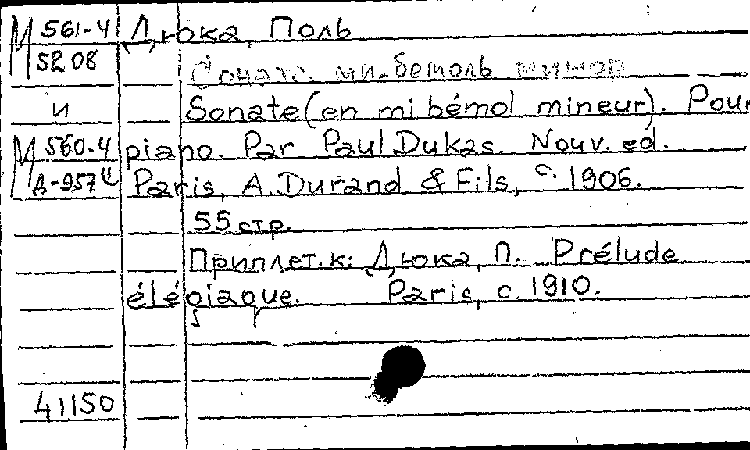 М 561-4 Дюка, Поль
5208
Соната ми-бемоль минор
и Sonate (en mi bémol mineur). Pour
М 560-4 piano. Par Paul Dukas. Nouv. éd.
Д-957 Paris, A. Durand & Fils, c. 1906.
55 стр.
Приплет. к: Дюка, П. Prélude
élégiaque. Paris, c. 1910.
41150